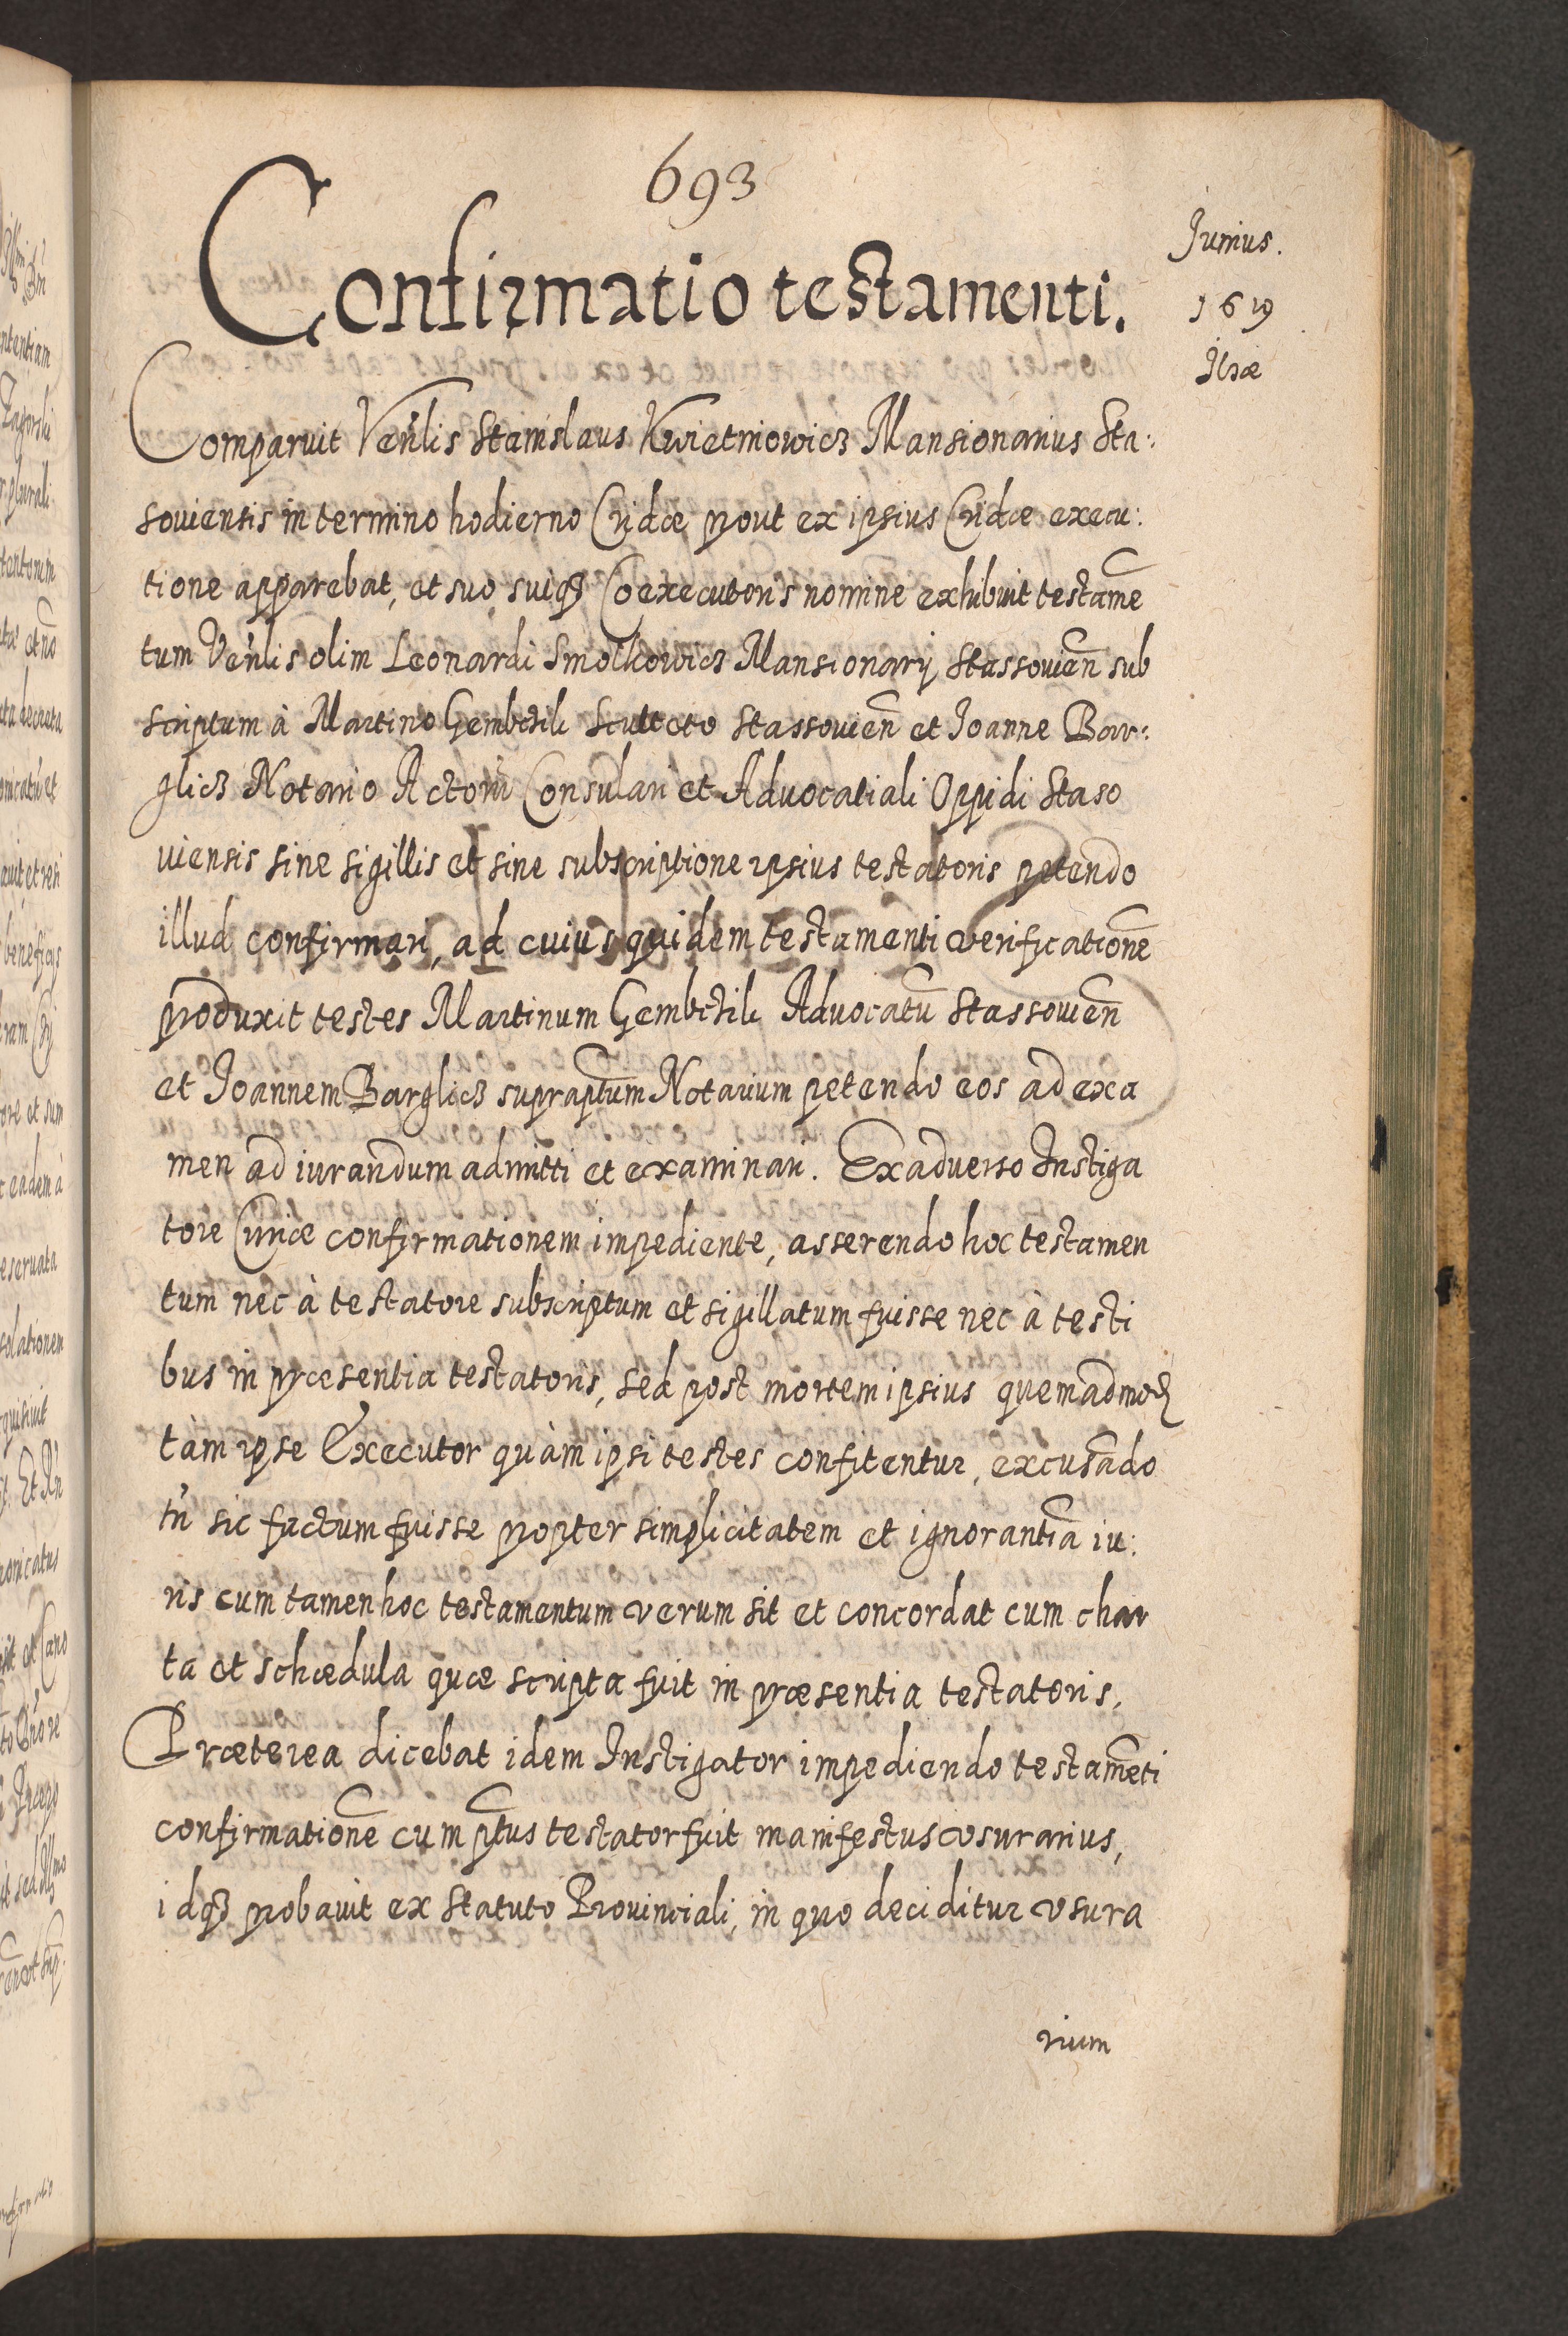 693
Junius.
1619
Ilzæ
Confirmatio testamenti.
Comparuit Ven͂lis Stanislaus Kwietniowicz Mansionarius Sta:
souiensis in termino hodierno Cridæ prout ex ipsius Cridæ execu:
tione apparebat, et suo suiqȝ Coexecutoris nomine exhibuit testame͂
tum Ven͂lis olim Leonardi Smolkowicz Mansionarij Stassouien͂ sub
scriptum à Martino Gembczik Sculteto Stassouien͂ et Joanne Bar:
glicz Notario Actorũ Consulari et Aduocatiali Oppidi Staso
uiensis sine sigillis et sine subscriptione ipsius testatoris petendo
illud confirmari, ad cuius quidem testamenti verificatione͂
produxit testes Martinum Gembczik Aduocatũ Stassouien͂
et Joannem Barglicz suprap͂tum Notarium petendo eos ad exa
men ad iurandum admitti et examinari. Exaduerso Instiga
tore Curiæ confirmationem impediente, asserendo hoc testamen
tum nec à testatore subscriptum et sigillatum fuisse nec à testi
bus in præsentia testatoris, sed post mortem ipsius quemadmod
tàm ipse Executor quàm ipsi testes confitentur, excusãdo
tn͂ sic factum fuisse propter simplicitatem et ignorantiã iu:
ris cum tamen hoc testamentum verum sit et concordat cum char
ta et schædula quæ scripta fuit in præsentia testatoris.
Præterea dicebat idem Instigator impediendo testame͂ti
confirmatione͂ cum p͂tus testator fuit manifestus vsurarius,
idqȝ probauit ex Statuto Prouinciali, in quo deciditur vsura
rium